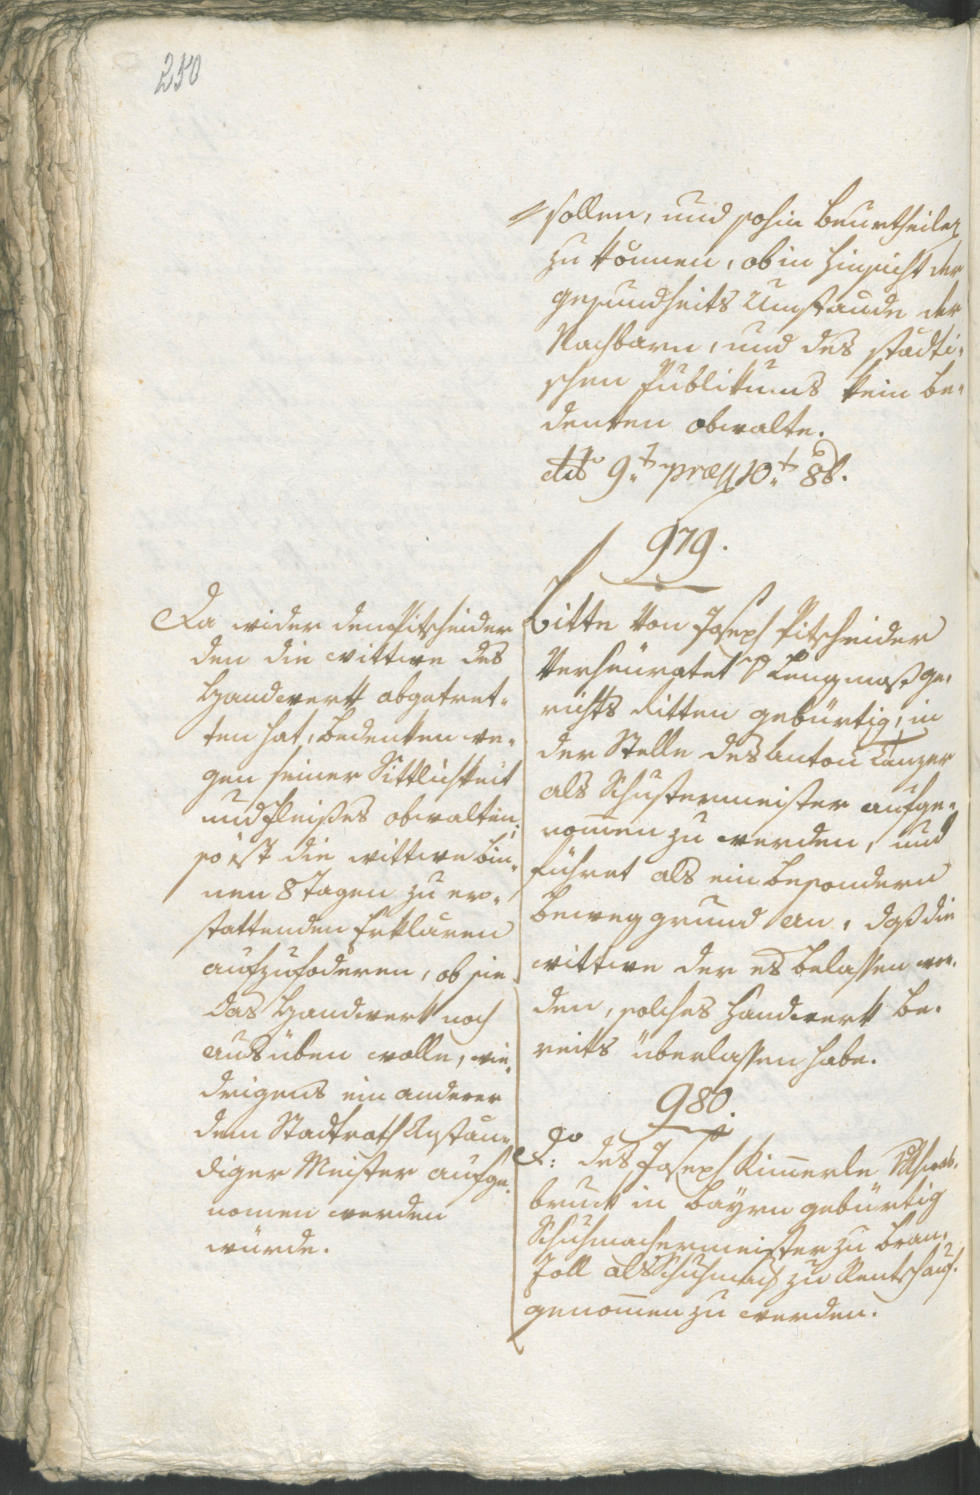 250
sollen, und sohin beurtheilen
zu können, ob in Hinsicht der
gesundheits Umstände der
Nachbarn, und des städti-
schen Publikums kein be-
denken obwalte.
dto 9t præs 10t 8b.
979.
Bitte von Joseph Pitscheider
verheuratet Lengmoß ge-
richts Ritten gebürtig, in
der Stelle des Anton Kanzer
als Schustermeister aufge-
nom̄en zu werden, und
führet als ein besondern
beweggrund an, daß die
wittwe der es belassen wor-
den, solches Handwerk be-
reits überlassen habe.
Da wider den Pitscheider
den die wittwe des
Handwerk abgetret-
ten hat, bedenken we-
gen seiner Sittlichkeit
und Fleißes obwalten;
so ist die wittwe bin-
nen 8 Tagen zu er-
stattenden Erklären
aufzufoderen, ob sie
das Handwerk noch
ausüben wolle, wie-
drigens ein anderer
dem Stadtrath Anstän-
diger Meister aufge-
nomen werden
würde.
980.
do: des Joseph Kim̄erle
bruck in Bayrn gebürtig
Schuhmachermeister zu Bran-
zoll als Schuhmach zu Rentsch auf-
genom̄en zu werden.